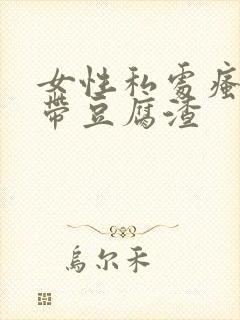 女性私處瘙
帶豆腐渣
烏尔禾